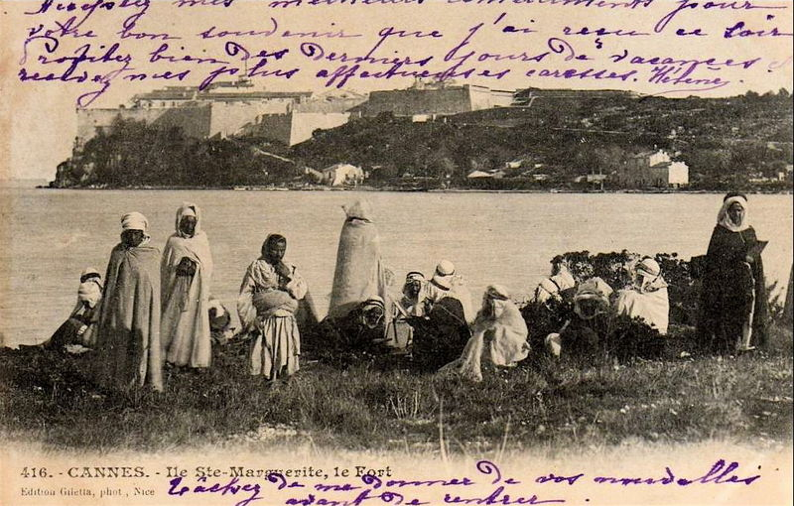 Acceptez mes meilleurs remerciements pour
votre bon souvenir que j'ai reçu ce soir
Profitez bien des derniers jours de vacances &
recevez mes plus affectueuses caresses. Hélène.
416. - CANNES. - Ile Ste-Marguerite, le Fort
Edition Giletta, phot, Nice
Tâchez de me donner de vos nouvelles
avant de rentrer.